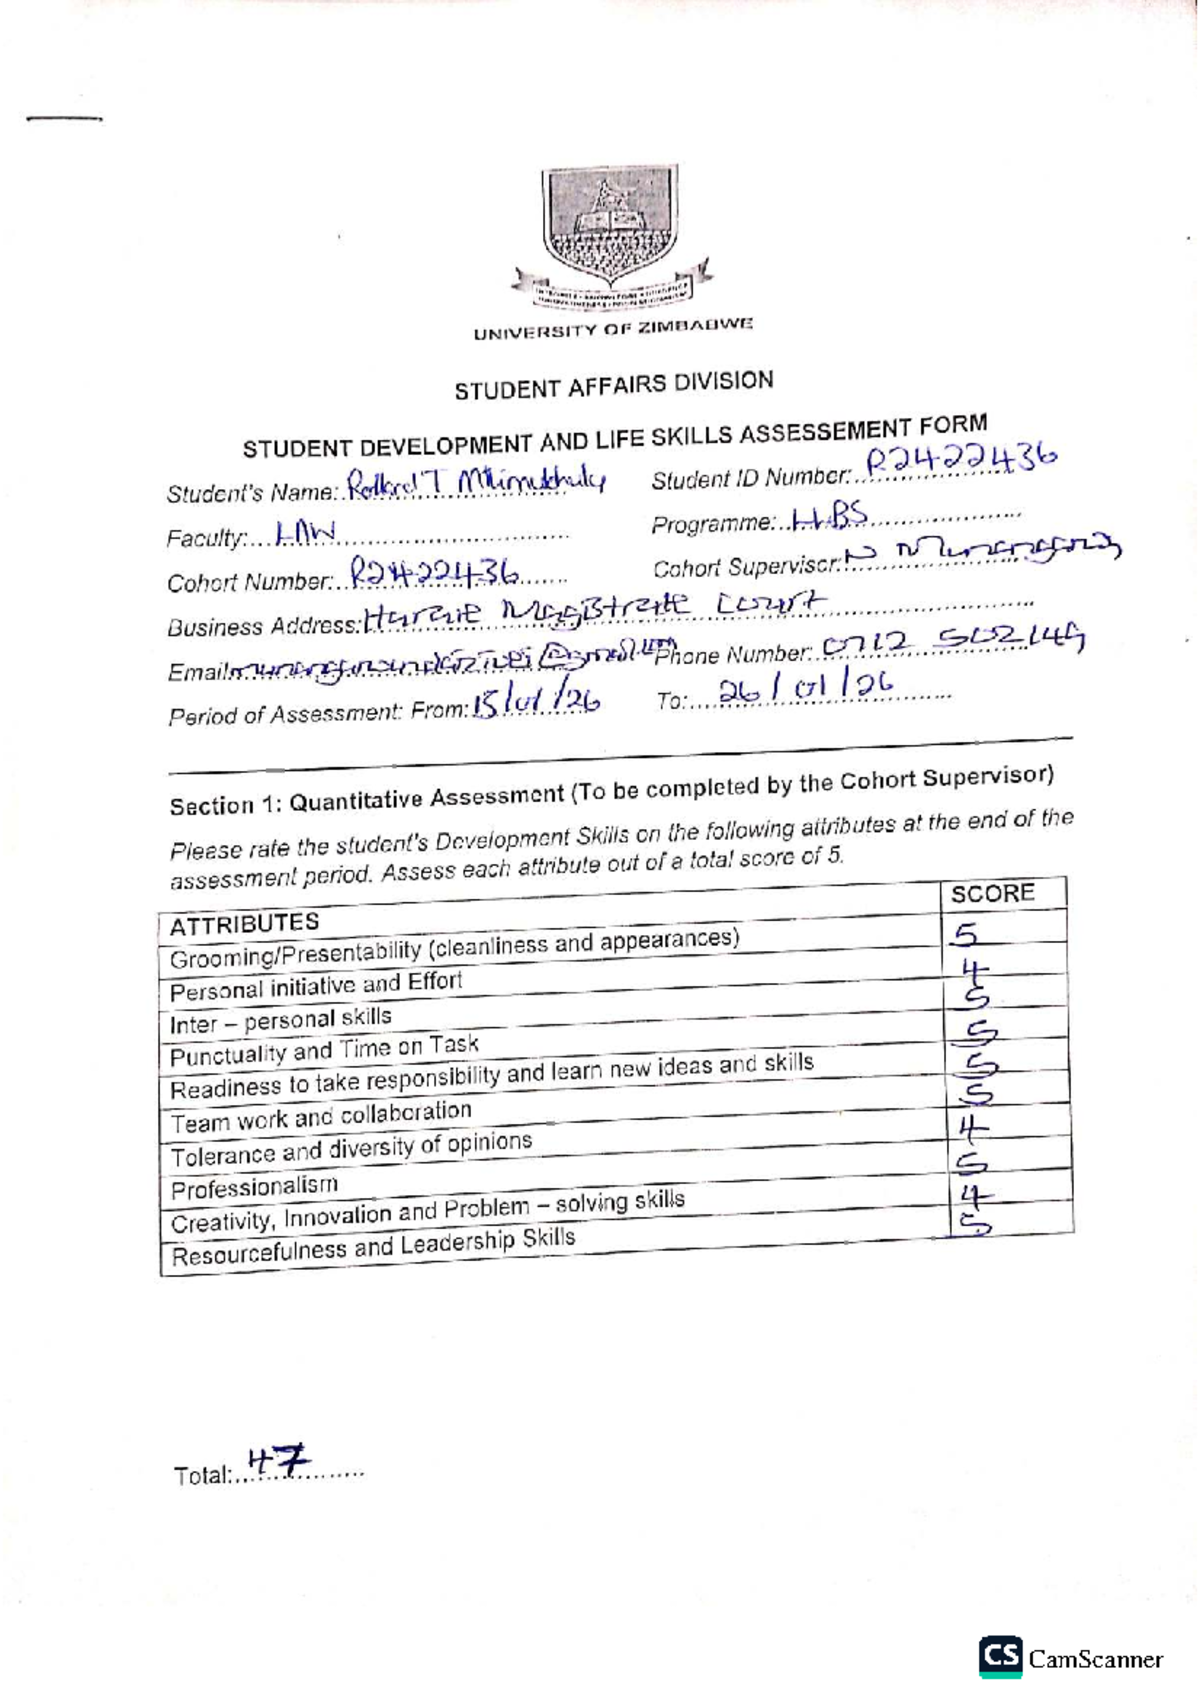 UNIVERSITY OF ZIMBABWE
STUDENT AFFAIRS DIVISION
STUDENT DEVELOPMENT AND LIFE SKILLS ASSESSEMENT FORM
Student's Name: T Student ID Number: R2422436
Faculty: LAW Programme: LLBS
Cohort Number: R2422436 Cohort Supervisor: N
Business Address: Harare Magistrate Court
Email: Phone Number: 0712 502149
Period of Assessment: From: 15/01/26 To: 26/01/26
Section 1: Quantitative Assessment (To be completed by the Cohort Supervisor)
Please rate the student's Development Skills on the following attributes at the end of the
assessment period. Assess each attribute out of a total score of 5.
ATTRIBUTES SCORE
Grooming/Presentability (cleanliness and appearances) 5
Personal initiative and Effort 4
Inter – personal skills 5
Punctuality and Time on Task 5
Readiness to take responsibility and learn new ideas and skills 5
Team work and collaboration 5
Tolerance and diversity of opinions 4
Professionalism 5
Creativity, Innovation and Problem – solving skills 4
Resourcefulness and Leadership Skills 5
Total: 47
CS CamScanner